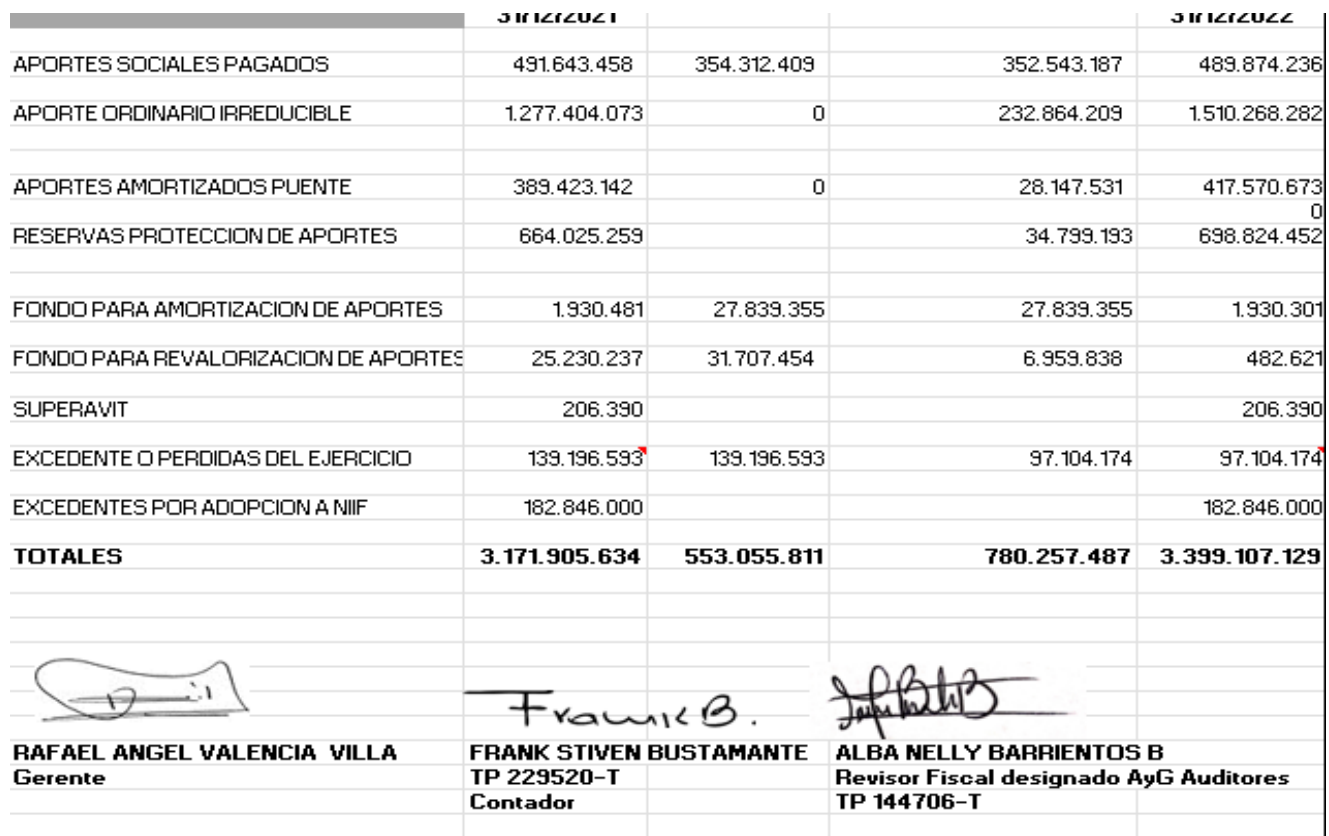 31/12/2021 31/12/2022
APORTES SOCIALES PAGADOS 491.643.458 354.312.409 352.543.187 489.874.236
APORTE ORDINARIO IRREDUCIBLE 1.277.404.073 0 232.864.209 1.510.268.282
APORTES AMORTIZADOS PUENTE 389.423.142 0 28.147.531 417.570.673
0
RESERVAS PROTECCION DE APORTES 664.025.259 34.799.193 698.824.452
FONDO PARA AMORTIZACION DE APORTES 1.930.481 27.839.355 27.839.355 1.930.301
FONDO PARA REVALORIZACION DE APORTES 25.230.237 31.707.454 6.959.838 482.621
SUPERAVIT 206.390 206.390
EXCEDENTE O PERDIDAS DEL EJERCICIO 139.196.593 139.196.593 97.104.174 97.104.174
EXCEDENTES POR ADOPCION A NIIF 182.846.000 182.846.000
TOTALES 3.171.905.634 553.055.811 780.257.487 3.399.107.129
Frank B.
RAFAEL ANGEL VALENCIA VILLA FRANK STIVEN BUSTAMANTE ALBA NELLY BARRIENTOS B
Gerente TP 229520-T Revisor Fiscal designado AyG Auditores
Contador TP 144706-T